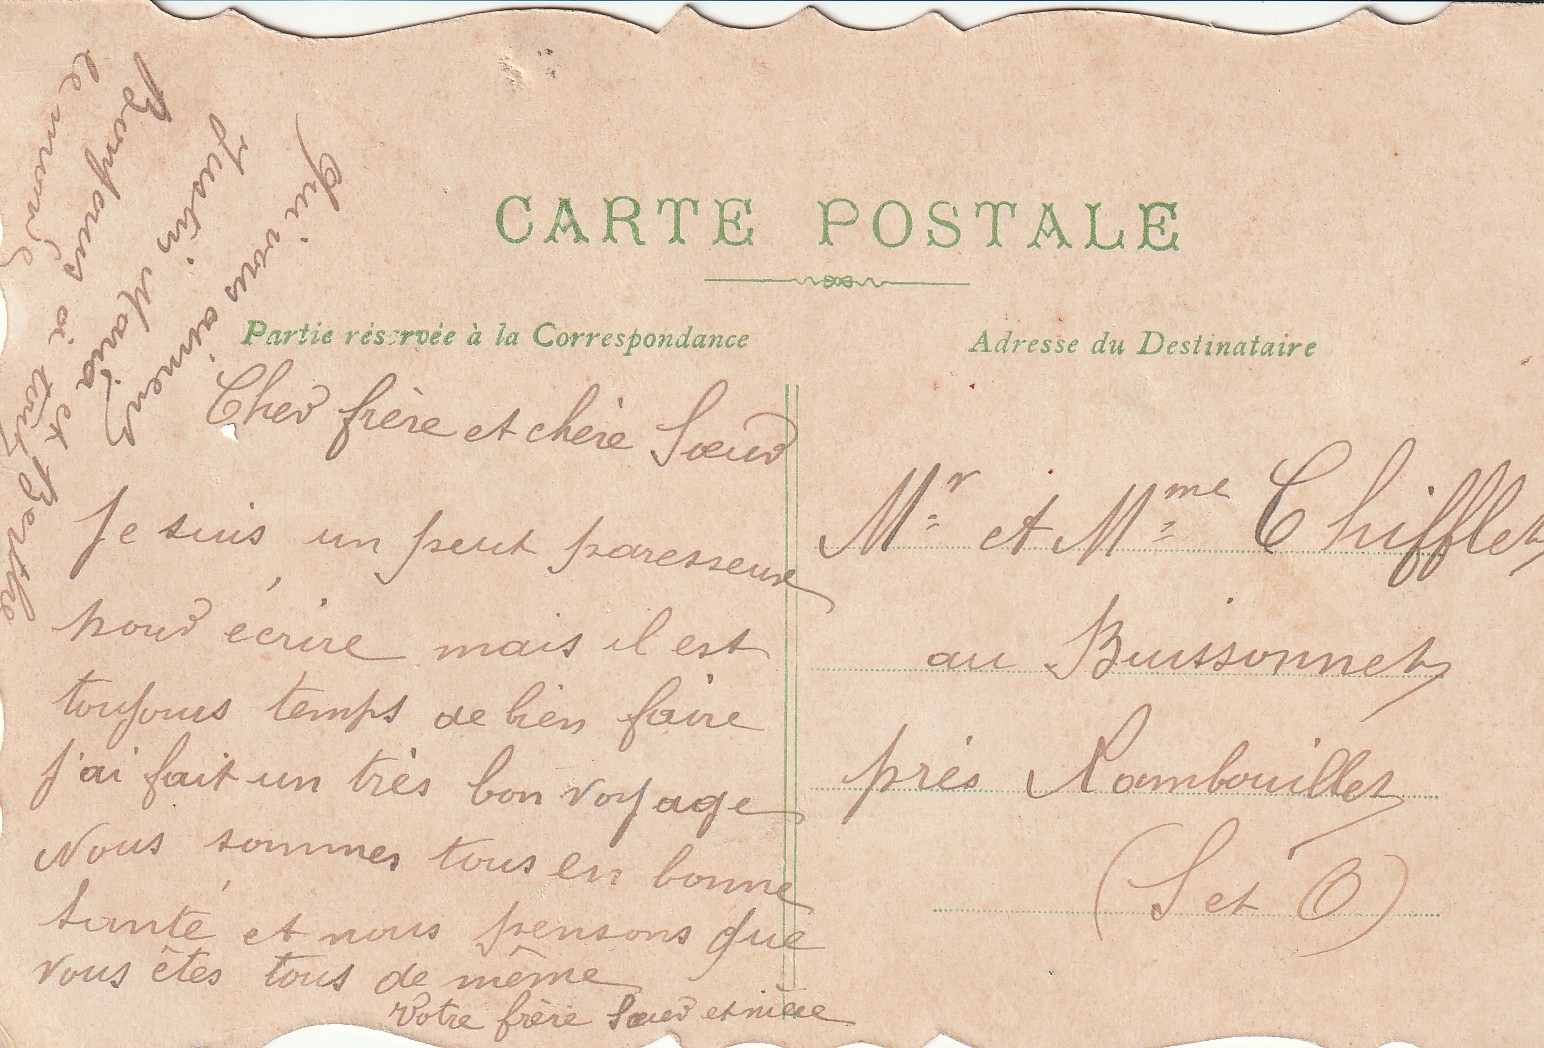 CARTE POSTALE
Partie réservée à la Correspondance
Adresse du Destinataire
Cher frère et chère Sœur
Je suis un peut paresseuse
pour écrire mais il est
toujours temps de bien faire
j'ai fait un très bon voyage
Nous sommes tous en bonne
santé et nous pensons que
vous êtes tous de même
Votre frère Sœur et nièce
qui vous aiment
Justin Maria et Berthe
Bonjours à tout
le monde
Mr et Mme Chifflet
au Buissonnet
près Rambouillet
(S et O)